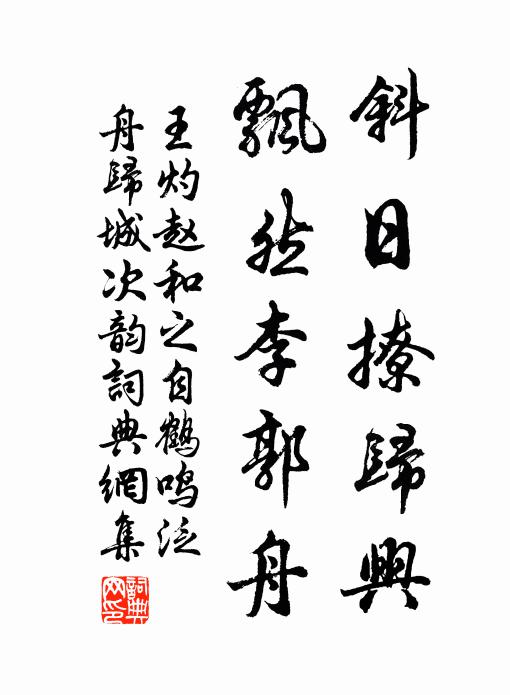 斜日撩歸興
飄然李郭舟
王灼赵和之自鶴鸣泛
舟歸城次韵詞典網集